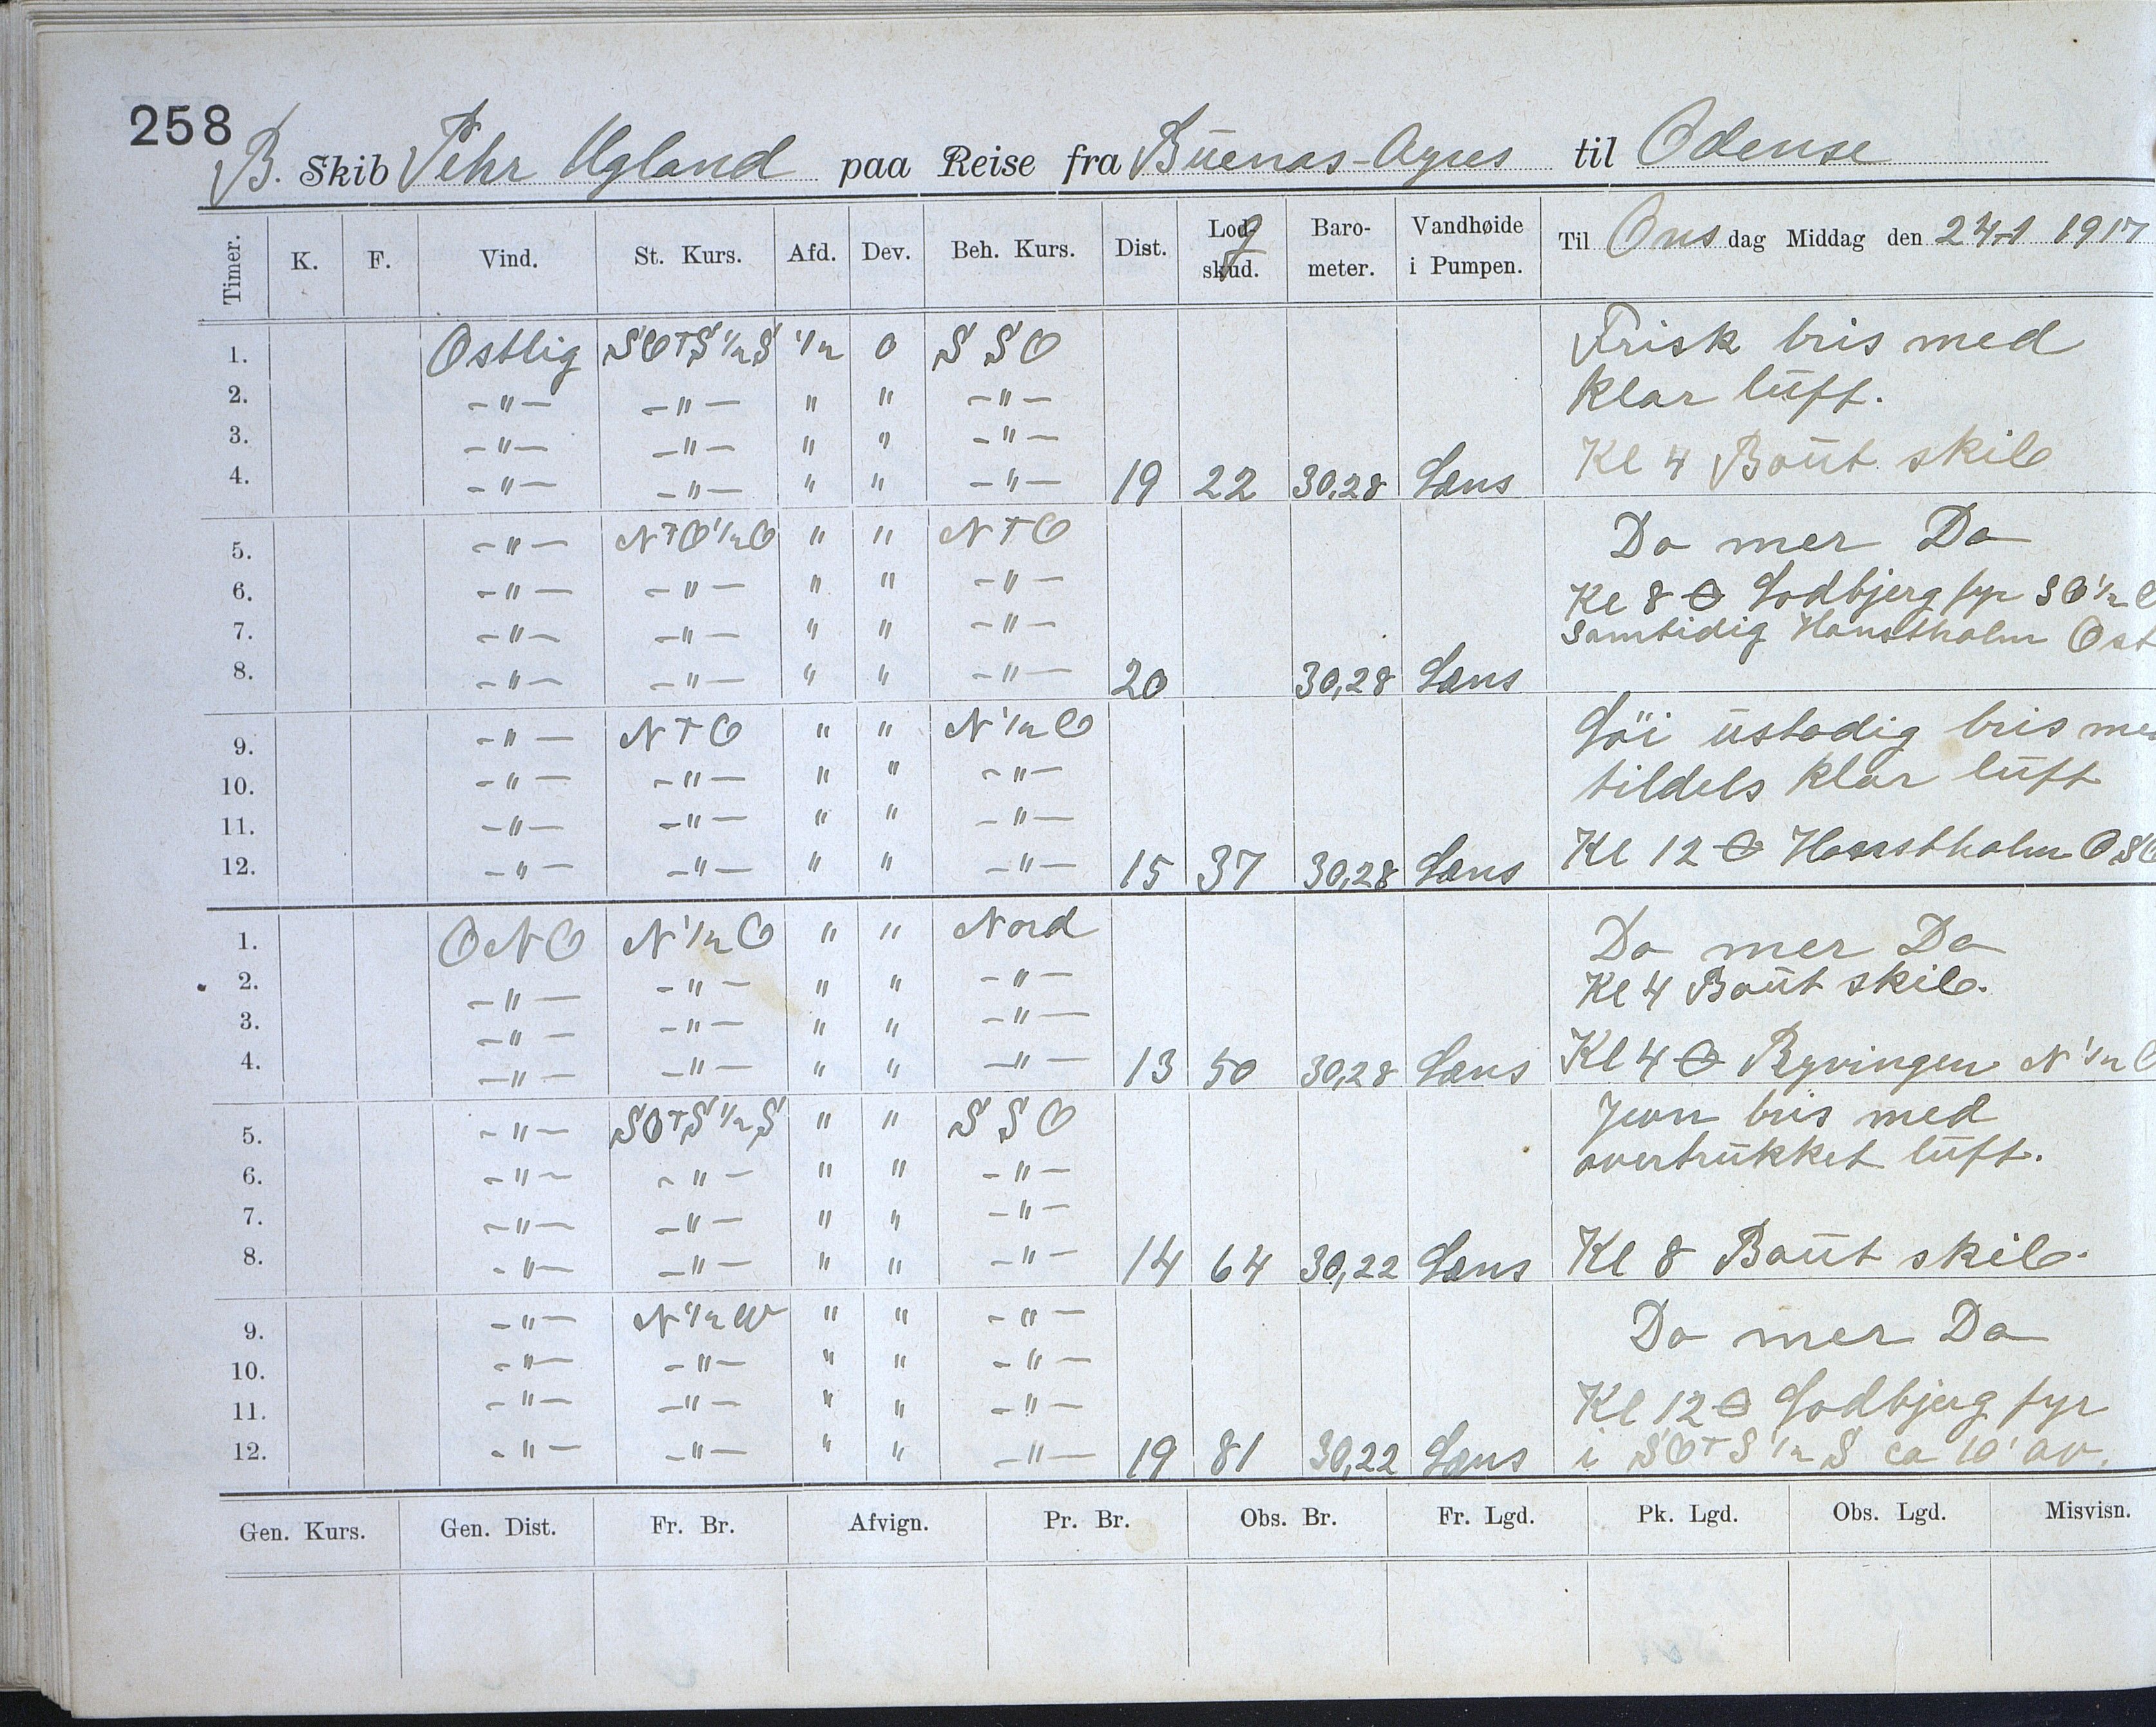 258
B. Skib Pehr Ugland paa Reise fra Buenos-Ayres til Odense
Timer. K. F. Vind. St. Kurs. Afd. Dev. Beh. Kurs. Dist. Log skud. Baro-meter. Vandhøide i Pumpen. Til Onsdag Middag den 24-1 1917
1. Ostlig SOTS 1/2 S 1/2 0 S S O Frisk bris med
2. -"- -"- " " -"- klar luft.
3. -"- -"- " " -"-
4. -"- -"- " " -"- 19 22 30,28 Læns Kl 4 Baut skib
5. -"- NTO 1/2 O " " NTO Do mer Do
6. -"- -"- " " -"- Kl 8 Lodbjerg fyr SO 1/2 O
7. -"- -"- " " -"- samtidig Hanstholm Ost
8. -"- -"- " " -"- 20 30,28 Læns
9. -"- NTO " " N 1/2 O Löi ustadig bris med
10. -"- -"- " " -"- tildels klar luft
11. -"- -"- " " -"-
12. -"- -"- " " -"- 15 37 30,28 Læns Kl 12 Hanstholm OSO
1. ONO N 1/2 O " " Nord Do mer Do
2. -"- -"- " " -"- Kl 4 Baut skib.
3. -"- -"- " " -"-
4. -"- -"- " " -"- 13 50 30,28 Læns Kl 4 Ryvingen N 1/2 O
5. -"- SOTS 1/2 S " " S S O Jevn bris med
6. -"- -"- " " -"- overtrukket luft.
7. -"- -"- " " -"-
8. -"- -"- " " -"- 14 64 30,22 Læns Kl 8 Baut skib.
9. -"- N 1/2 W " " -"- Do mer Do
10. -"- -"- " " -"-
11. -"- -"- " " -"- Kl 12 Lodbjerg fyr
12. -"- -"- " " -"- 19 81 30,22 Læns i SOTS 1/2 S ca 10' av.
Gen. Kurs. Gen. Dist. Fr. Br. Afvign. Pr. Br. Obs. Br. Fr. Lgd. Pk. Lgd. Obs. Lgd. Misvisn.